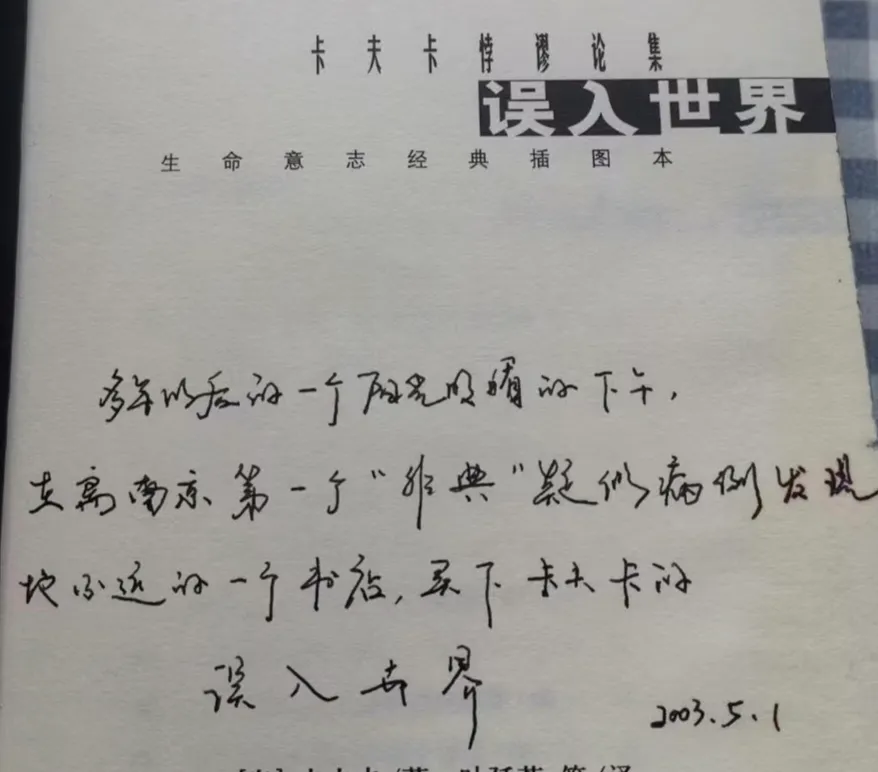 卡夫卡悖谬论集
误入世界
生命意志经典插图本
多年以后的一个阳光明媚的下午，
在离南京第一个“非典”疑似病例发现
地不远的一个书店，买下卡夫卡的
误入世界
2003.5.1